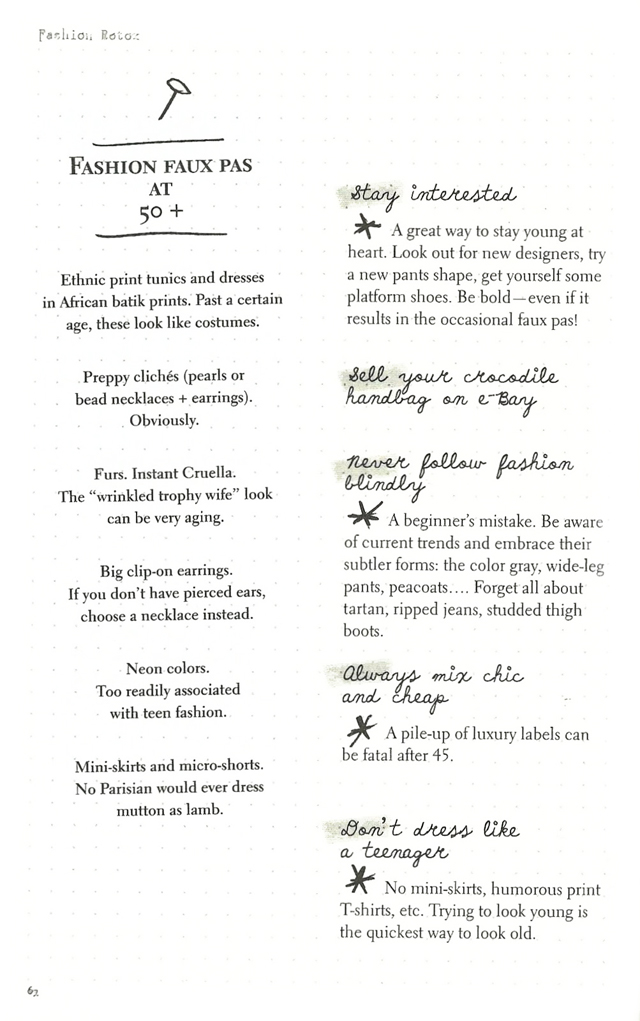 Fashion Rotox
FASHION FAUX PAS
AT
50 +
Ethnic print tunics and dresses
in African batik prints. Past a certain
age, these look like costumes.
Preppy clichés (pearls or
bead necklaces + earrings).
Obviously.
Furs. Instant Cruella.
The “wrinkled trophy wife” look
can be very aging.
Big clip-on earrings.
If you don’t have pierced ears,
choose a necklace instead.
Neon colors.
Too readily associated
with teen fashion.
Mini-skirts and micro-shorts.
No Parisian would ever dress
mutton as lamb.
Stay interested
A great way to stay young at
heart. Look out for new designers, try
a new pants shape, get yourself some
platform shoes. Be bold—even if it
results in the occasional faux pas!
Sell your crocodile
handbag on e-Bay
Never follow fashion
blindly
A beginner’s mistake. Be aware
of current trends and embrace their
subtler forms: the color gray, wide-leg
pants, peacoats.... Forget all about
tartan, ripped jeans, studded thigh
boots.
Always mix chic
and cheap
A pile-up of luxury labels can
be fatal after 45.
Don’t dress like
a teenager
No mini-skirts, humorous print
T-shirts, etc. Trying to look young is
the quickest way to look old.
62